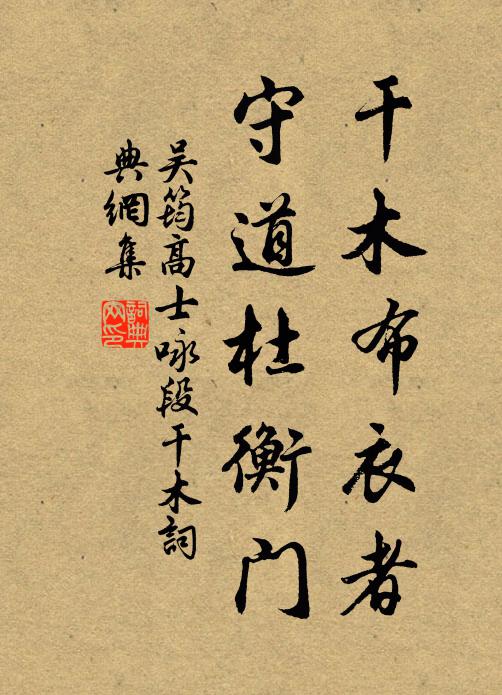 干木布衣者
守道杜衡門
吳筠高士咏段干木詞
典網集
詞典
网印